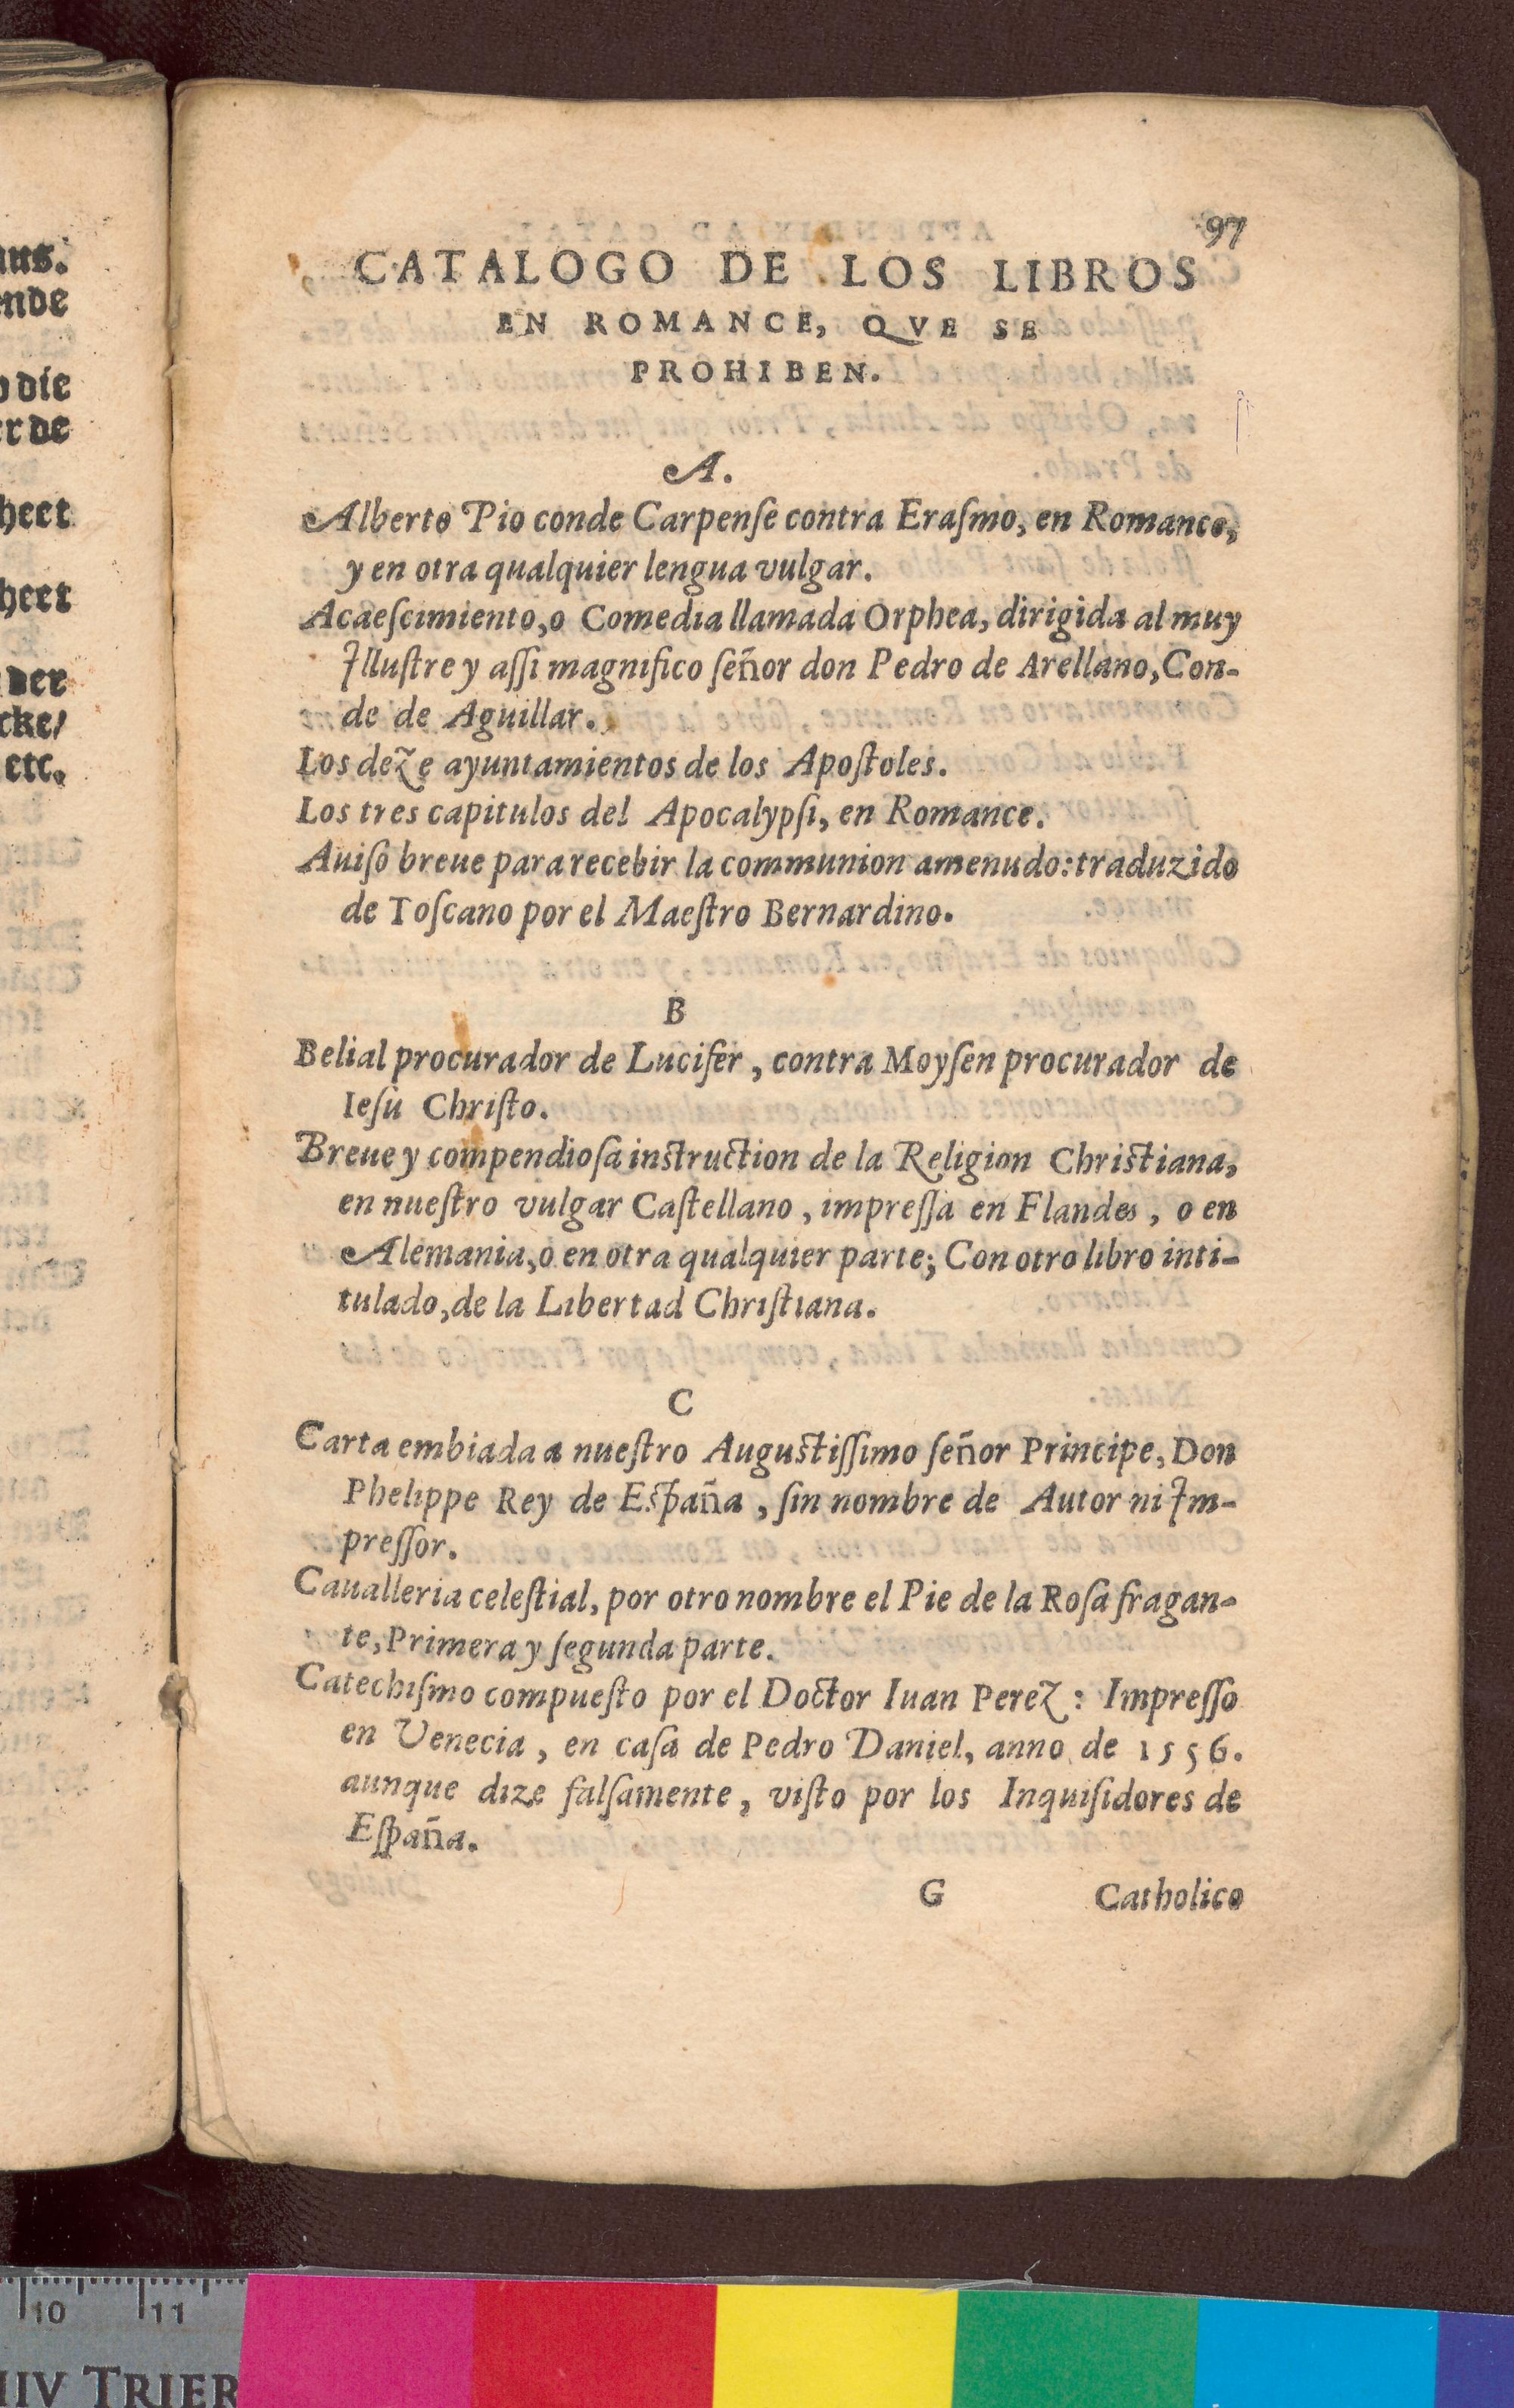 aus.
ende
die
er de
heet
heet
der
cke/
etc.
97
CATALOGO DE LOS LIBROS
EN ROMANCE, QVE SE
PROHIBEN.
A.
Alberto Pio conde Carpenſe contra Eraſmo, en Romance,
y en otra qualquier lengua vulgar.
Acaeſcimiento, o Comedia llamada Orphea, dirigida al muy
Illuſtre y aſſi magnifico ſeñor don Pedro de Arellano, Con-
de de Aguillar.
Los deze ayuntamientos de los Apoſtoles.
Los tres capitulos del Apocalypſi, en Romance.
Auiſo breue para recebir la communion amenudo: traduzido
de Toſcano por el Maeſtro Bernardino.
B
Belial procurador de Lucifer, contra Moyſen procurador de
Ieſu Chriſto.
Breue y compendioſa inſtruction de la Religion Chriſtiana,
en nueſtro vulgar Caſtellano, impreſſa en Flandes, o en
Alemania, o en otra qualquier parte; Con otro libro inti-
tulado, de la Libertad Chriſtiana.
C
Carta embiada a nueſtro Auguſtiſſimo ſeñor Principe, Don
Phelippe Rey de Eſpaña, ſin nombre de Autor ni Im-
preſſor.
Caualleria celeſtial, por otro nombre el Pie de la Roſa fragan-
te, Primera y ſegunda parte.
Catechiſmo compueſto por el Doctor Iuan Perez: Impreſſo
en Venecia, en caſa de Pedro Daniel, anno de 1556.
aunque dize falſamente, viſto por los Inquiſidores de
Eſpaña.
G Catholico
10 11
HIV TRIER